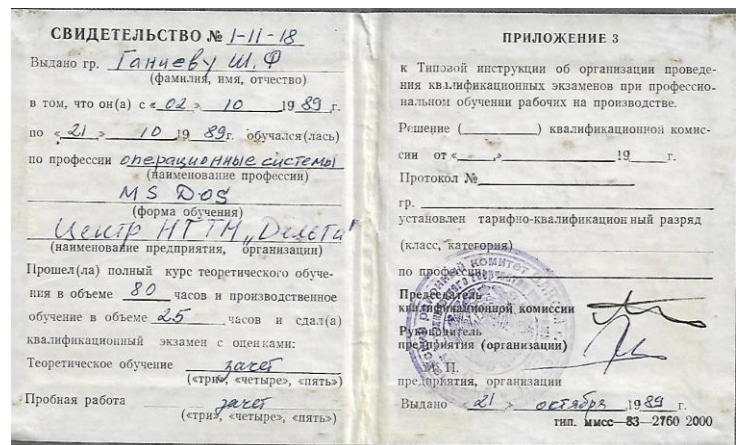 СВИДЕТЕЛЬСТВО № 1-11-18
Выдано гр. Ганиеву Ш.Ф
(фамилия, имя, отчество)
в том, что он(а) с « 02 » 10 1989 г.
по « 21 » 10 19 89г. обучался(лась)
по профессии операционные системы
(наименование профессии)
MS DOS
(форма обучения)
Центр НТТМ „Дельта"
(наименование предприятия, организации)
Прошел(ла) полный курс теоретического обуче-
ния в объеме 80 часов и производственное
обучение в объеме 25 часов и сдал(а)
квалификационный экзамен с оценками:
Теоретическое обучение зачет
(«три», «четыре», «пять»)
Пробная работа зачет
(«три», «четыре», «пять»)
ПРИЛОЖЕНИЕ 3
к Типовой инструкции об организации проведе-
ния квалификационных экзаменов при профессио-
нальном обучении рабочих на производстве.
Решение ( ) квалификационной комис-
сии от « » 19 г.
Протокол №
гр.
установлен тарифно-квалификационный разряд
(класс, категория)
по профессии
Председатель
квалификационной комиссии
Руководитель
предприятия (организации)
М. П.
предприятия, организации
Выдано « 21 » октября 1989 г.
тип. ммсс—83—2760 2000